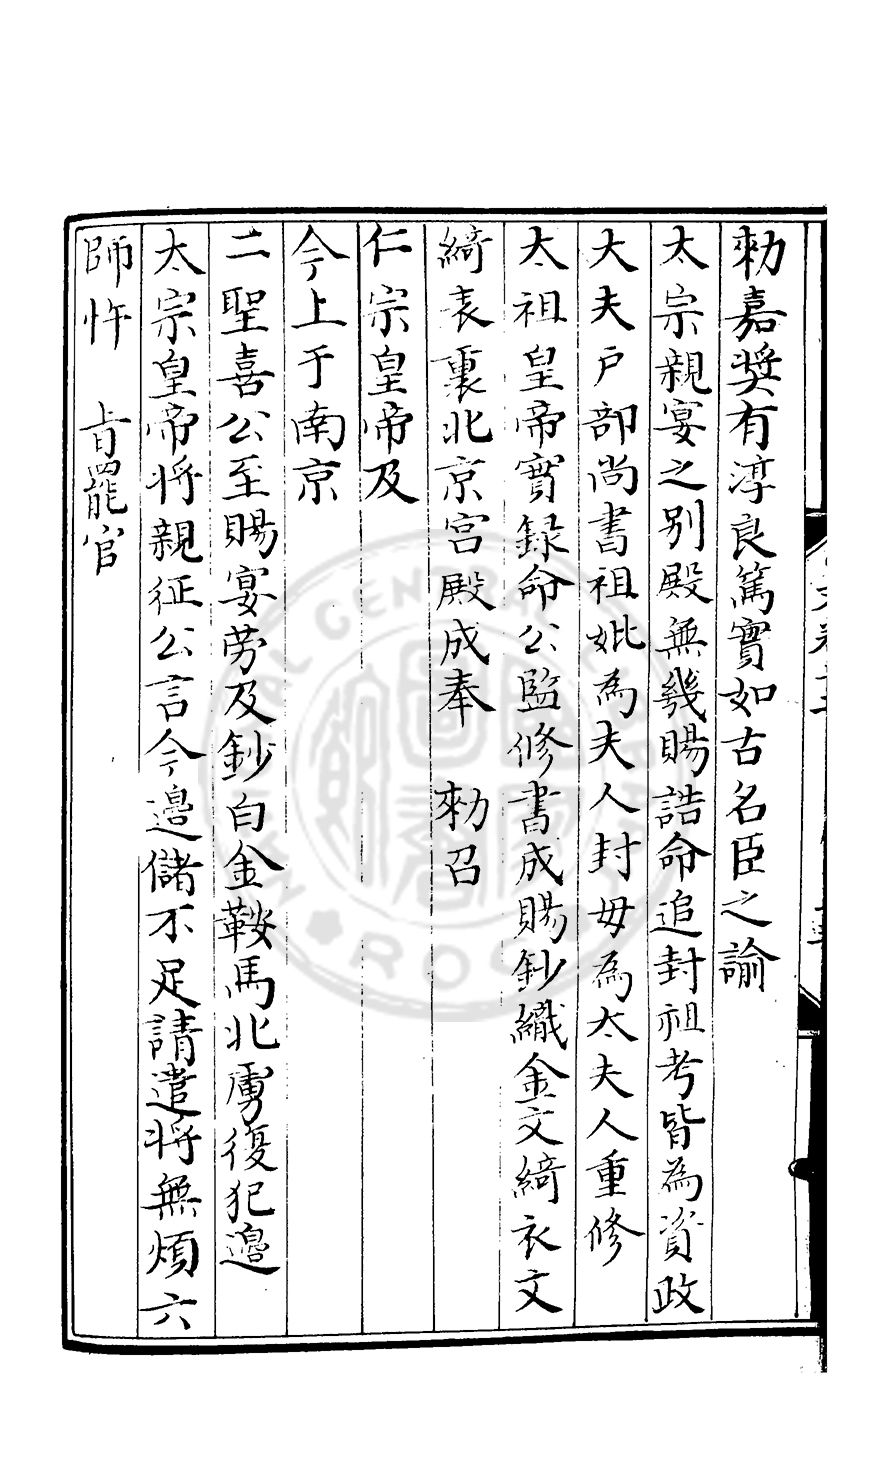 勑嘉奬有淳良篤實如古名臣之諭
太宗親宴之别殿無幾賜誥命追封祖考皆為資政
大夫户部尚書祖妣為夫人封母為太夫人重修
太祖皇帝實録命公監修書成賜鈔織金文綺衣文
綺表裏北京宮殿成奉　勑召
仁宗皇帝及
今上于南京
二聖喜公至賜宴劳及鈔白金鞍馬北虜復犯邊
太宗皇帝将親征公言今邊儲不足請遣将無煩六
師忤　㫖罷官